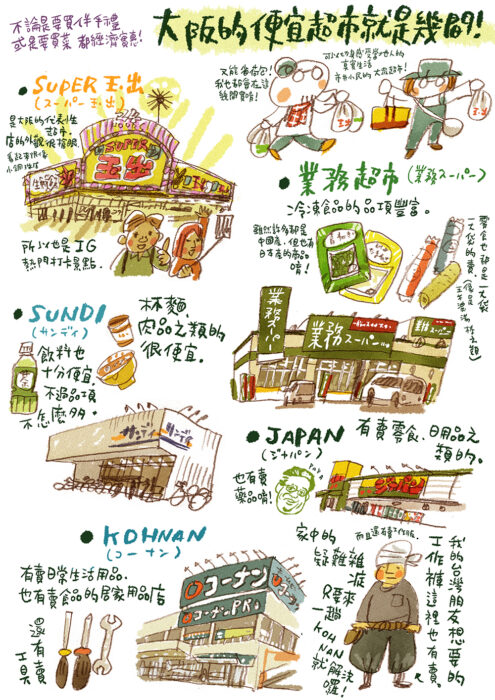 不論是要買伴手禮
或是要買菜 都經濟實惠!
大阪的便宜超市就是幾間!
SUPER 玉出
(スーパー玉出)
是大阪的代表性
超市。
店的外觀很搶眼,
SUPER
玉出
所以也是IG
熱門打卡景點.
又能省荷包!
我也都會在這
幾間買唷!
玉出
業務超市 (業務スーパー)
冷凍食品的品項豐富。
雖然許多都是
中國產,但也有
日本產的商品
唷!
零食也都是一大袋
一大袋的賣.
業務スーパー
業務スーパー
SUNDI
(サンディ)
杯麵.
肉品之類的
很便宜.
飲料也
十分便宜.
不過品項
不怎麼多.
サンディ
JAPAN
(ジャパン)
有賣零食.日用品之
類的.
也有賣
藥品唷!
ジャパン
KOHNAN
(コーナン)
有賣日常生活用品.
也有賣食品的居家用品店
還有賣
工具
コーナン
コーナンPRO
家中的
疑難雜
症
只要來
一趟
KOHNAN
就解決
囉!
而且還有賣工作服.
我的台灣朋友想要的
工作褲這裡也有賣.